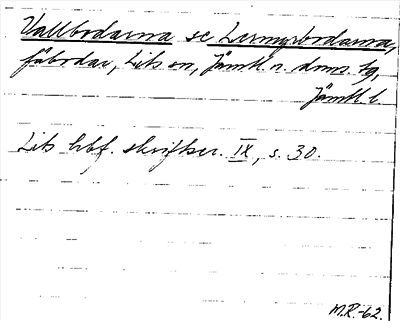 Vallbodarna se Lermyrbodarna,
fäbodar, Lits sn, Jämtl. n. doms. tg,
Jämtl. l.
Lits hbf. skriftser. IX, s. 30.
M.R.-62.